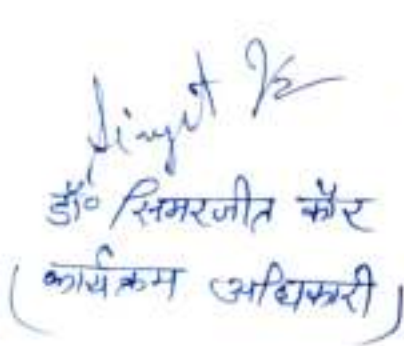 डॉ० सिमरजीत कौर
(कार्यक्रम अधिकारी)